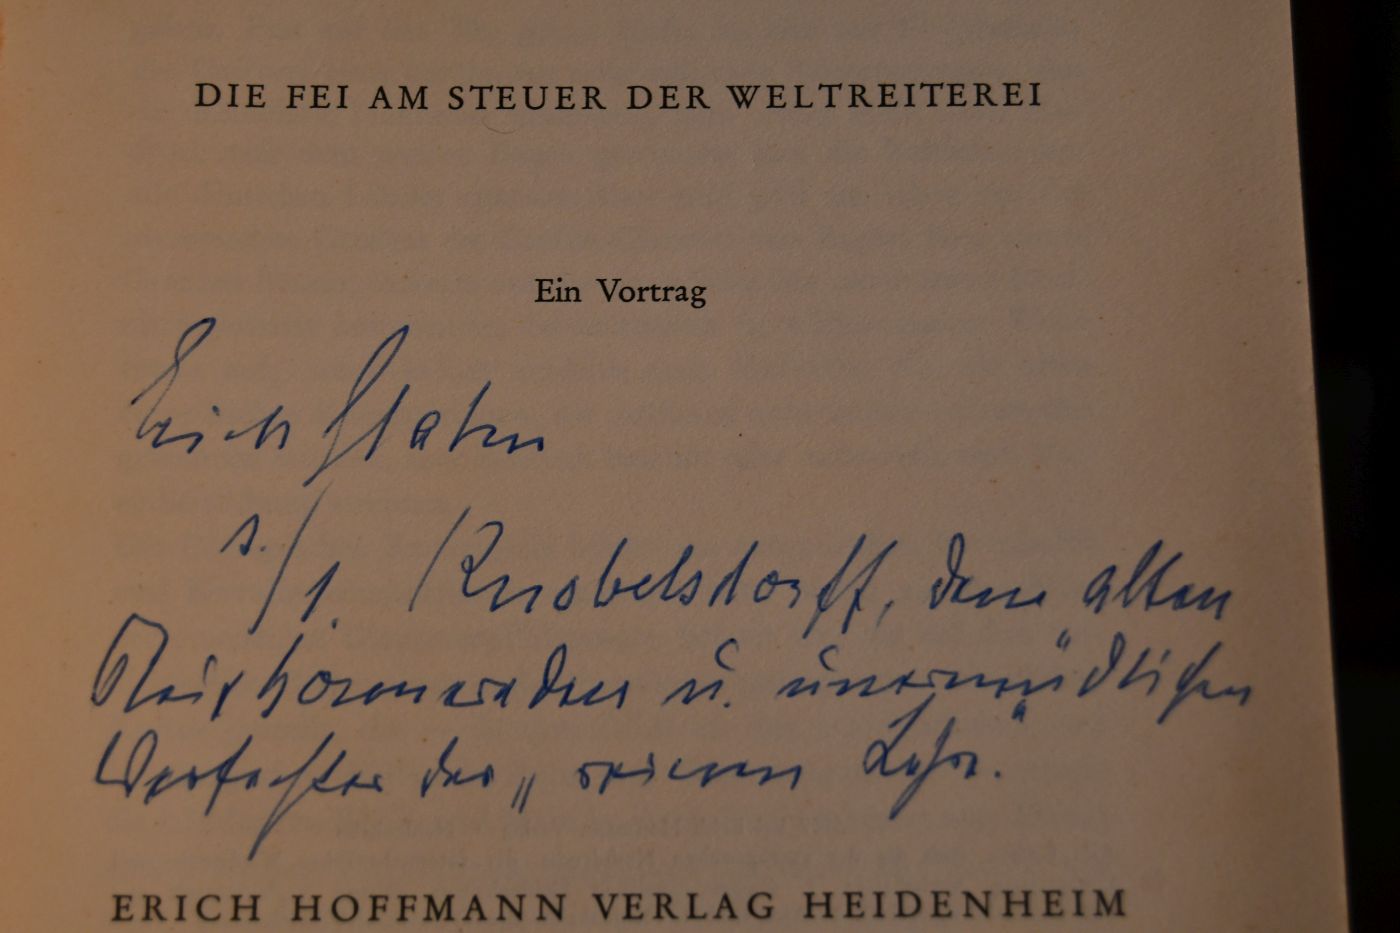 DIE FEI AM STEUER DER WELTREITEREI
Ein Vortrag
Erich Glahn
s./l. Knobelsdorff, dem alten
Reitkameraden u. unermüdlichen
Verfechter der „reinen Lehre".
ERICH HOFFMANN VERLAG HEIDENHEIM